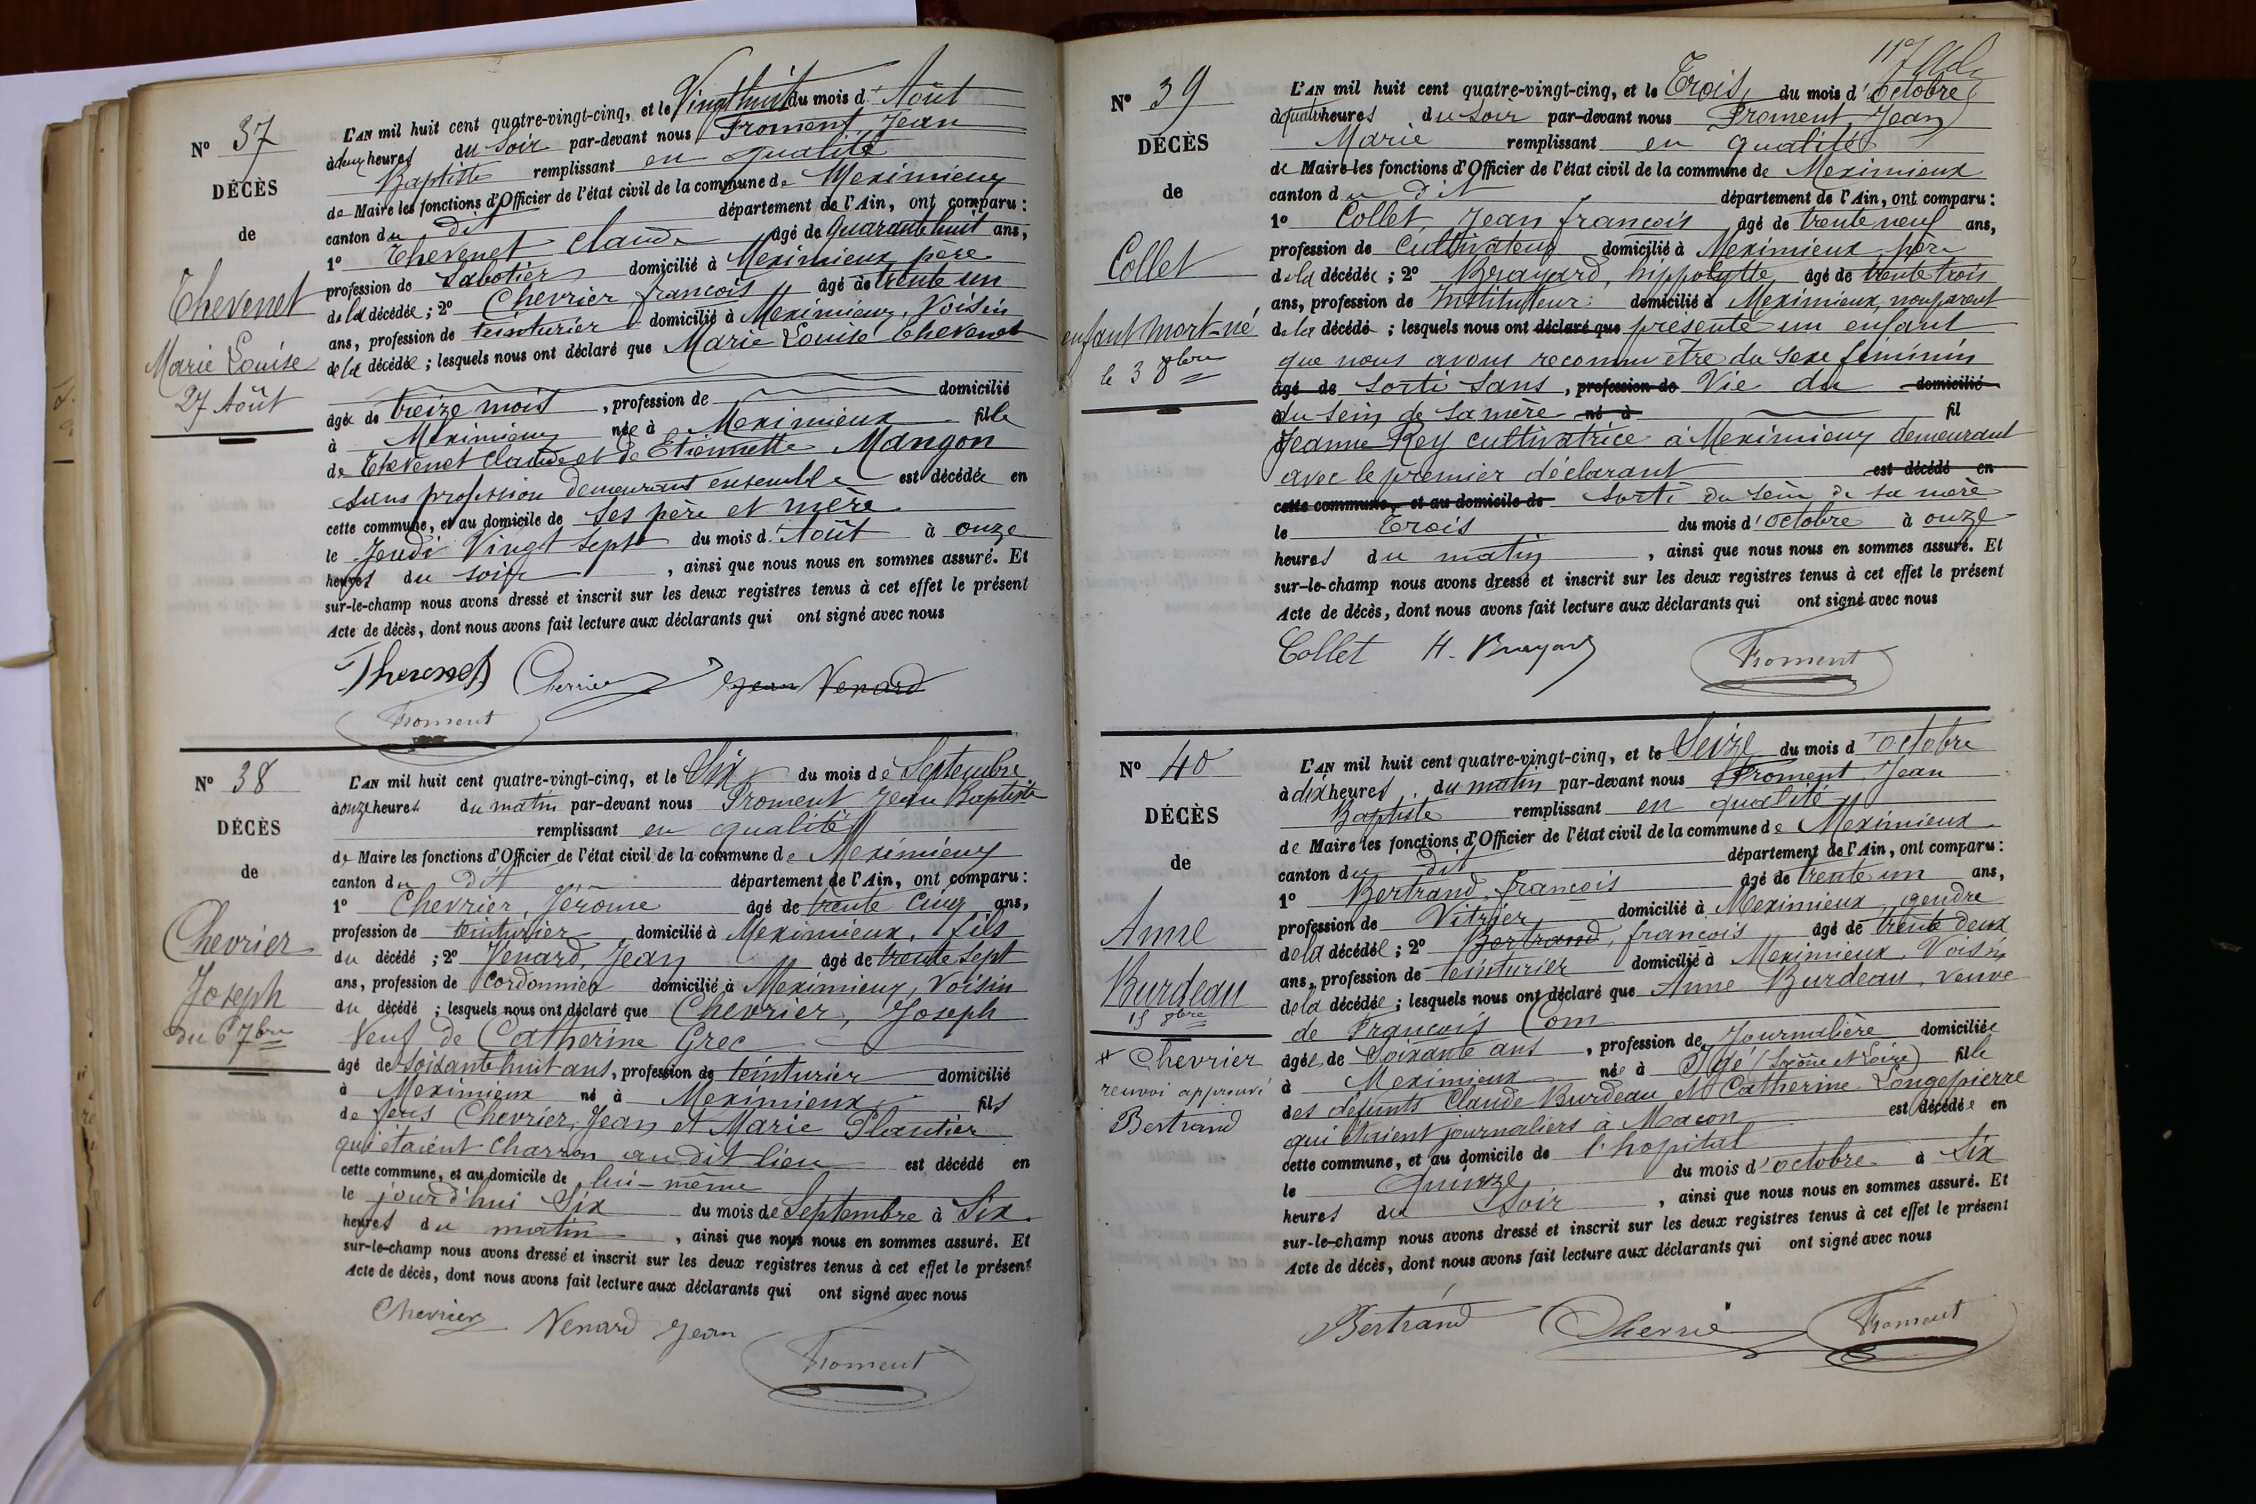 N° 37
DÉCÈS
de
Thevenet
Marie Louise
27 Août
L'AN mil huit cent quatre-vingt-cinq, et le Vingt huit du mois d'Août
à deux heures du soir par-devant nous Froment, Jean
Baptiste remplissant en qualité
de Maire les fonctions d'Officier de l'état civil de la commune de Meximieux
canton du dit département de l'Ain, ont comparu :
1° Thevenet Claude âgé de quarante huit ans,
profession de Sabotier domicilié à Meximieux, père
de la décédée ; 2° Chevrier françois âgé de trente un
ans, profession de teinturier domicilié à Meximieux, Voisin
de la décédée ; lesquels nous ont déclaré que Marie Louise Thevenet
âgée de treize mois, profession de domicilié
à Meximieux née à Meximieux fille
de Thevenet Claude et de Etiennette Mangon
sans profession demeurant ensemble est décédée en
cette commune, et au domicile de ses père et mère
le Jeudi Vingt sept du mois d'Août à onze
heures du soir, ainsi que nous nous en sommes assuré. Et
sur-le-champ nous avons dressé et inscrit sur les deux registres tenus à cet effet le présent
Acte de décès, dont nous avons fait lecture aux déclarants qui ont signé avec nous
Thevenet Chevrier Jean Venard
Froment
N° 38
DÉCÈS
de
Chevrier
Joseph
du 6 7bre
L'AN mil huit cent quatre-vingt-cinq, et le Six du mois de Septembre
à onze heures du matin par-devant nous Froment Jean Baptiste
remplissant en qualité
de Maire les fonctions d'Officier de l'état civil de la commune de Meximieux
canton du dit département de l'Ain, ont comparu :
1° Chevrier, Jérome âgé de trente cinq ans,
profession de teinturier domicilié à Meximieux, fils
du décédé ; 2° Venard, Jean âgé de trente sept
ans, profession de Cordonnier domicilié à Meximieux, Voisin
du décédé ; lesquels nous ont déclaré que Chevrier, Joseph
Veuf de Catherine Grec
âgé de soixante huit ans, profession de teinturier domicilié
à Meximieux né à Meximieux fils
de feus Chevrier, Jean et Marie Plantier
qui étaient charron au dit lieu est décédé en
cette commune, et au domicile de lui-même
le jourd'hui Six du mois de Septembre à Six
heures du matin, ainsi que nous nous en sommes assuré. Et
sur-le-champ nous avons dressé et inscrit sur les deux registres tenus à cet effet le présent
Acte de décès, dont nous avons fait lecture aux déclarants qui ont signé avec nous
Chevrier Venard Jean
Froment
N° 39
DÉCÈS
de
Collet
enfant mort-né
le 3 8bre
L'AN mil huit cent quatre-vingt-cinq, et le Trois du mois d'octobre
à quatre heures du soir par-devant nous Froment, Jean
Marie remplissant en qualité
de Maire les fonctions d'Officier de l'état civil de la commune de Meximieux
canton du dit département de l'Ain, ont comparu :
1° Collet Jean françois âgé de trente neuf ans,
profession de cultivateur domicilié à Meximieux père
de la décédée ; 2° Brayard, hippolytte âgé de trente trois
ans, profession de Instituteur domicilié à Meximieux, non parent
de la décédé ; lesquels nous ont déclaré que présenté un enfant
que nous avons reconnu être du sexe féminin
âgé de sorti sans, profession de Vie du domicilié
du sein de sa mère né à fil
Jeanne Rey cultivatrice à Meximieux demeurant
avec le premier déclarant est décédé en
cette commune, et au domicile de sorti du sein de sa mère
le Trois du mois d'octobre à onze
heures du matin, ainsi que nous nous en sommes assuré. Et
sur-le-champ nous avons dressé et inscrit sur les deux registres tenus à cet effet le présent
Acte de décès, dont nous avons fait lecture aux déclarants qui ont signé avec nous
Collet H. Brayard
Froment
N° 40
DÉCÈS
de
Anne
Burdeau
15 8bre
# Chevrier
renvoi approuvé
Bertrand
L'AN mil huit cent quatre-vingt-cinq, et le Seize du mois d'octobre
à dix heures du matin par-devant nous Froment Jean
Baptiste remplissant en qualité
de Maire les fonctions d'Officier de l'état civil de la commune de Meximieux
canton du dit département de l'Ain, ont comparu :
1° Bertrand, françois âgé de trente un ans,
profession de Vitrier domicilié à Meximieux, gendre
de la décédée ; 2° Bertrand, françois âgé de trente deux
ans, profession de teinturier domicilié à Meximieux, Voisin
de la décédée ; lesquels nous ont déclaré que Anne Burdeau, veuve
de François Com
âgée de Soixante ans, profession de Journalière domiciliée
à Meximieux née à Igé (Saône et Loire) fille
des défunts Claude Burdeau et Catherine Longepierre
qui étaient journaliers à Macon est décédée en
cette commune, et au domicile de l'hopital
le Quinze du mois d'octobre à Six
heures du Soir, ainsi que nous nous en sommes assuré. Et
sur-le-champ nous avons dressé et inscrit sur les deux registres tenus à cet effet le présent
Acte de décès, dont nous avons fait lecture aux déclarants qui ont signé avec nous
Bertrand Chevrié Froment